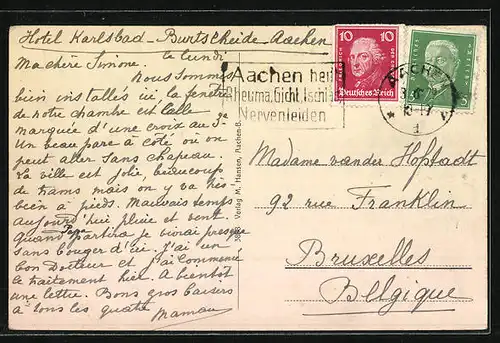 Hotel Karlsbad - Burtscheide - Aachen
le lundi
Ma chère Simone.
Nous sommes
bien installés ici la fenêtre
de notre chambre est celle
marquée d'une croix au 3e
Un beau parc à côté où on
peut aller sans chapeau.
La ville est jolie, beaucoup
de trams mais on y va très
bien à pieds. Mauvais temps
aujourd'hui pluie et vent.
Quand Papa partira je vivrai presque
sans bouger d'ici. J'ai un
bon Docteur et j'ai commencé
le traitement hier. A bientôt
une lettre. Bons gros baisers
à tous les quatre
Maman
Aachen heilt
Rheuma, Gicht, Ischias
Nervenleiden
10 10
FRIEDRICH
Deutsches Reich
5
AACHEN
1
Verlag M. Hansen, Aachen
Madame vander Hofstadt
92 rue Franklin
Bruxelles
Belgique